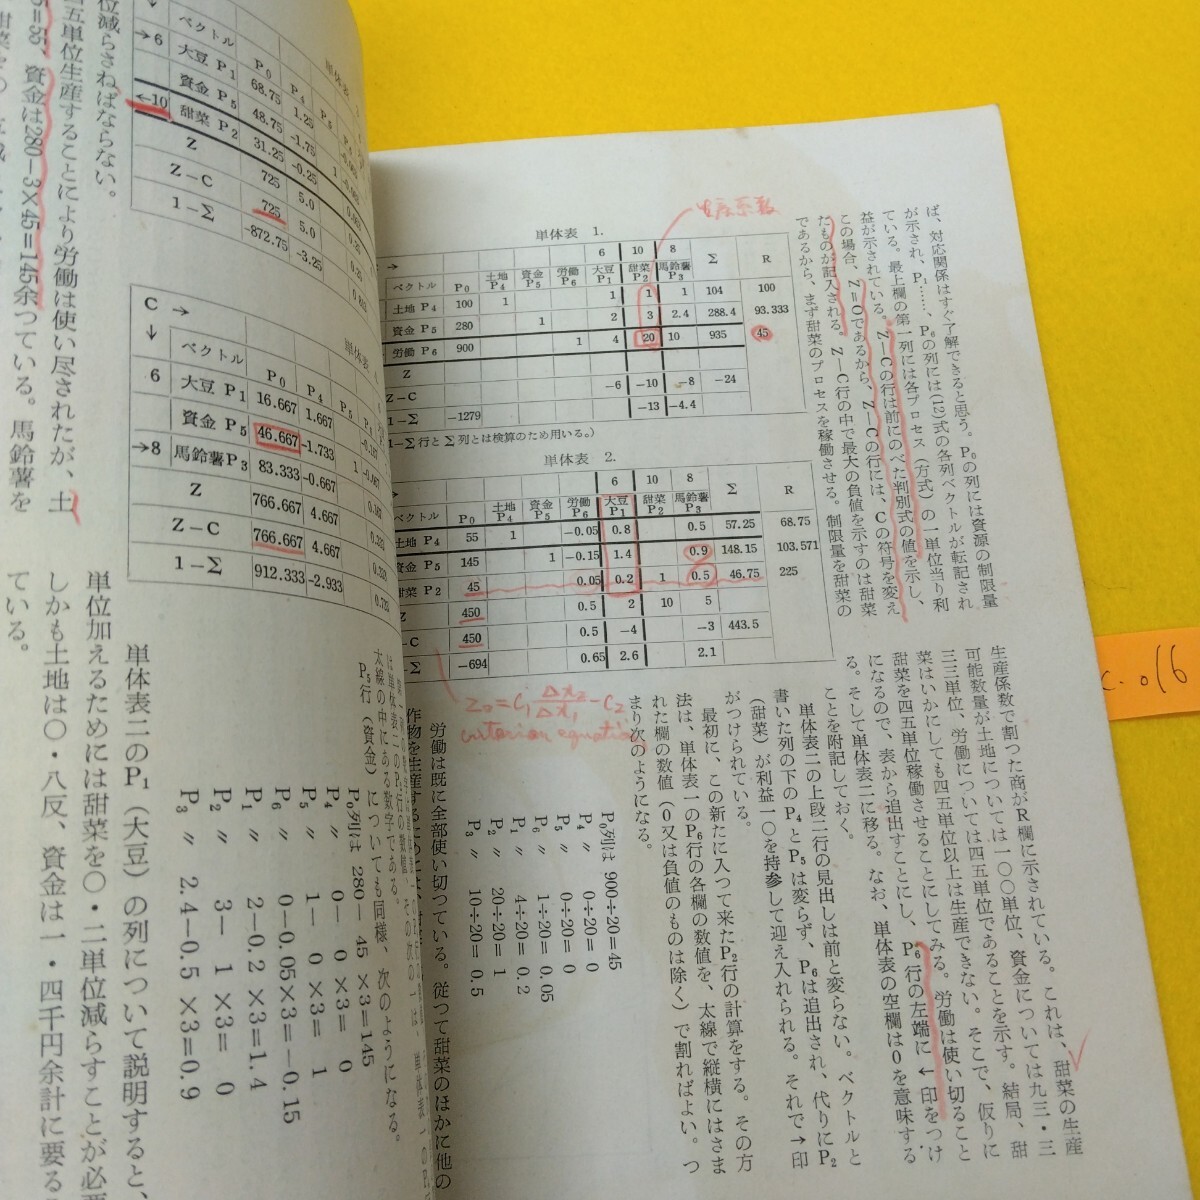 ば、対応関係はすぐ了解できると思う。P₀の列には資源の制限量
が示され、P₁……、P₆の列には(12)式の各列ベクトルが転記され
ている。最上欄の第一列には各プロセス（方式）の一単位当り利
益が示されている。Z−Cの行は前にのべた判別式の値を示し、
この場合、Z=0であるから、Z−Cの行には、Cの符号を変え
たものが記入される。Z−C行の中で最大の負値を示すのは甜菜
であるから、まず甜菜のプロセスを稼働させる。制限量を甜菜の
生産係数
単体表 1.
→ 6 10 8
ベクトル P₀ 土地P₄ 資金P₅ 労働P₆ 大豆P₁ 甜菜P₂ 馬鈴薯P₃ Σ R
土地 P₄ 100 1 1 1 1 104 100
資金 P₅ 280 1 2 3 2.4 288.4 93.333
労働 P₆ 900 1 4 20 10 935 45
Z
Z−C −6 −10 −8 −24
1−Σ −1279 −13 −4.4
1−Σ行とΣ列とは検算のため用いる。）
単体表 2.
→ 6 10 8
ベクトル P₀ 土地P₄ 資金P₅ 労働P₆ 大豆P₁ 甜菜P₂ 馬鈴薯P₃ Σ R
土地 P₄ 55 1 −0.05 0.8 0.5 57.25 68.75
資金 P₅ 145 1 −0.15 1.4 0.9 148.15 103.571
甜菜 P₂ 45 0.05 0.2 1 0.5 46.75 225
Z 450 0.5 2 10 5
−C 450 0.5 −4 −3 443.5
−Σ −694 0.65 2.6 2.1
criterion equation
生産係数で割つた商がR欄に示されている。これは、甜菜の生産
可能数量が土地については一〇〇単位、資金については九三・三
三単位、労働については四五単位であることを示す。結局、甜
菜はいかにしても四五単位以上は生産できない。そこで、仮りに
甜菜を四五単位稼働させることにしてみる。労働は使い切ること
になるので、表から追出すことにし、P₆行の左端に←印をつけ
る。そして単体表二に移る。なお、単体表の空欄は0を意味する
ことを附記しておく。
単体表二の上段二行の見出しは前と変らない。ベクトルと
書いた列の下のP₄とP₅は変らず、P₆は追出され、代りにP₂
（甜菜）が利益一〇を持参して迎え入れられる。それで→印
がつけられている。
最初に、この新たに入つて来たP₂行の計算をする。その方
法は、単体表一のP₆行の各欄の数値を、太線で縦横にはさま
れた欄の数値（0又は負値のものは除く）で割ればよい。つ
まり次のようになる。
P₀列は 900÷20=45
P₄ 〃 0÷20=0
P₅ 〃 0÷20=0
P₆ 〃 1÷20=0.05
P₁ 〃 4÷20=0.2
P₂ 〃 20÷20=1
P₃ 〃 10÷20=0.5
労働は既に全部使い切つている。従つて甜菜のほかに他の
太線の中にある数字である。
P₅行（資金）についても同様、次のようになる。
P₀列は 280− 45 ×3=145
P₄ 〃 0− 0 ×3= 0
P₅ 〃 1− 0 ×3= 1
P₆ 〃 0−0.05×3=−0.15
P₁ 〃 2−0.2 ×3=1.4
P₂ 〃 3− 1 ×3= 0
P₃ 〃 2.4−0.5 ×3=0.9
単体表二のP₁（大豆）の列について説明すると、
単位加えるためには甜菜を〇・二単位減らすことが必要
しかも土地は〇・八反、資金は一・四千円余計に要る
ている。
位減らさねばならない。
四五単位生産することにより労働は使い尽されたが、土
5=55、資金は280−3×45=145余つている。馬鈴薯を
↓ ベクトル P₀ P₄ P₅
→6 大豆 P₁ 68.75 1.25
資金 P₅ 48.75 -1.75 1
←10 甜菜 P₂ 31.25 -0.25
Z 725 5.0
Z−C 725 5.0
1−Σ -872.75 -3.25
C →
↓ ベクトル P₀ P₄
6 大豆 P₁ 16.667 1.667
資金 P₅ 46.667 -1.733 1
→8 馬鈴薯P₃ 83.333 -0.667
Z 766.667 4.667
Z−C 766.667 4.667
1−Σ 912.333 -2.933
c.016